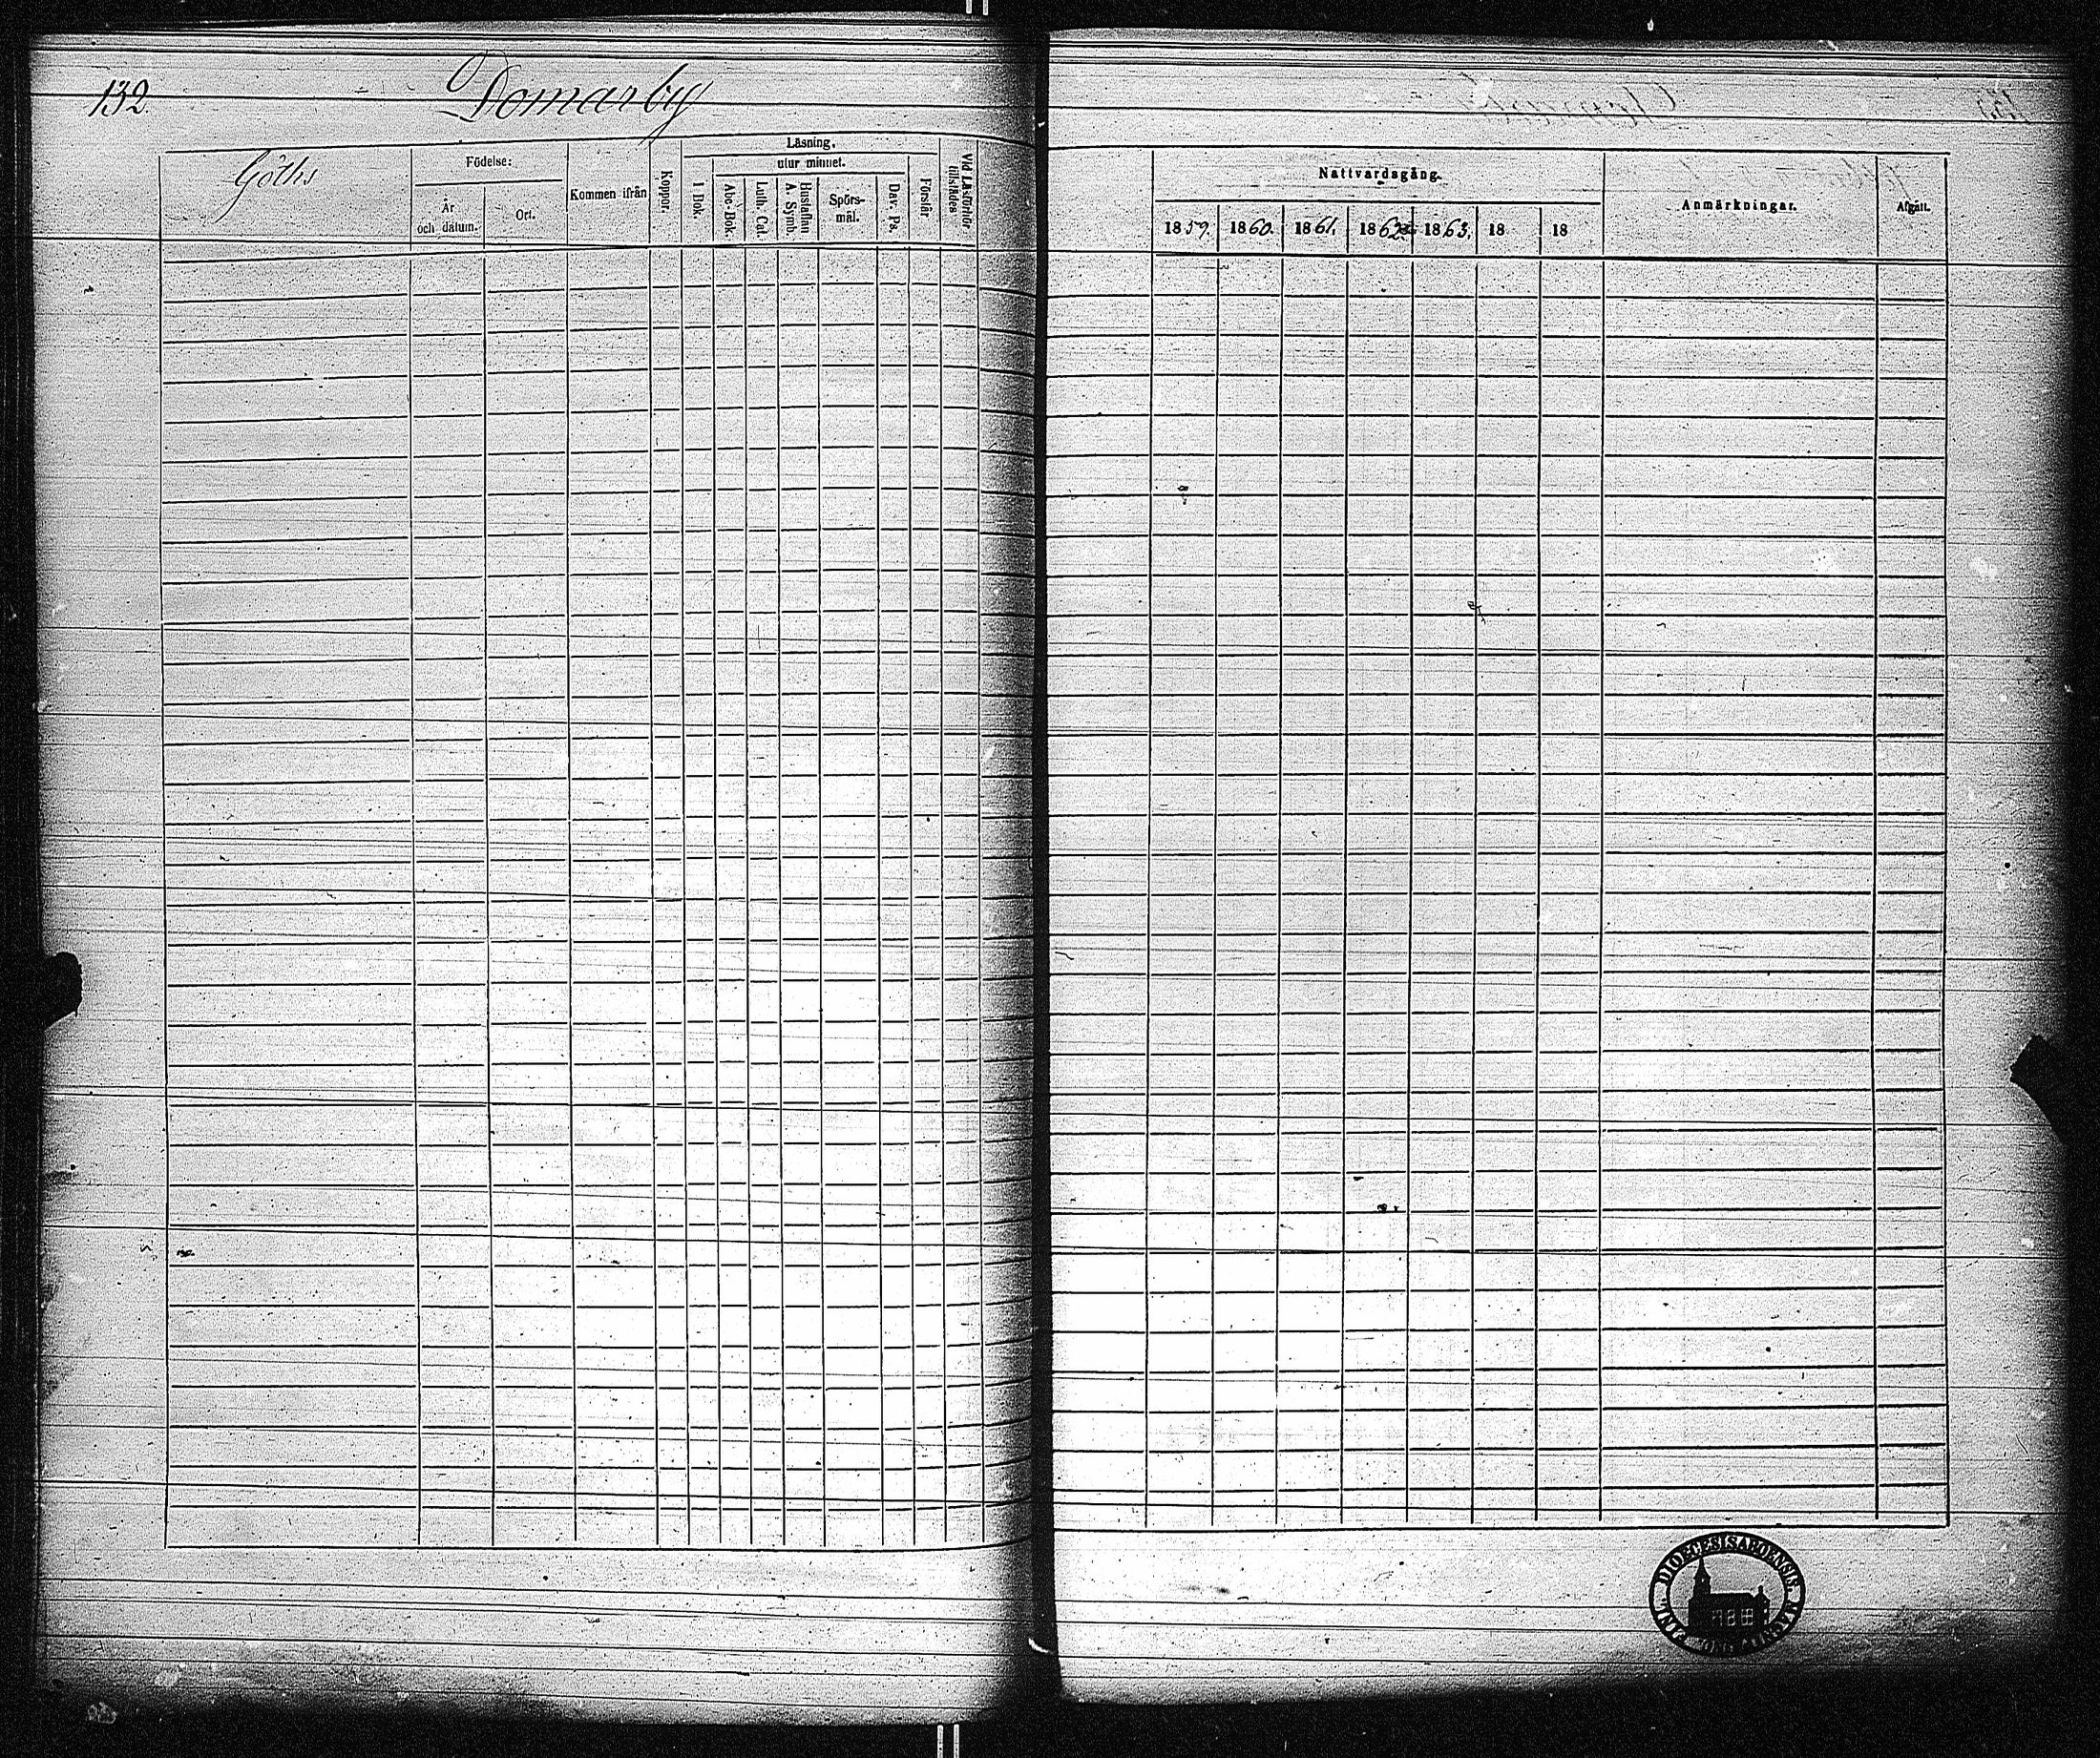 132.
Domarby
Göths
Födelse:
År
och datum.
Ort.
Kommen ifrån
Koppor.
Läsning.
utur minnet.
I Bok.
Abc-Bok
Luth. Cat.
Hustaflan
A. Symb.
Spörs-
mål.
Dav. Ps.
Förstår
Vid Läsförhör
tillstädes
Nattvardsgång.
1859. 1860. 1861. 1862 1863. 18 18
Anmärkningar.
Afgått.
DIOECESIS ABOENSIS MAGNI